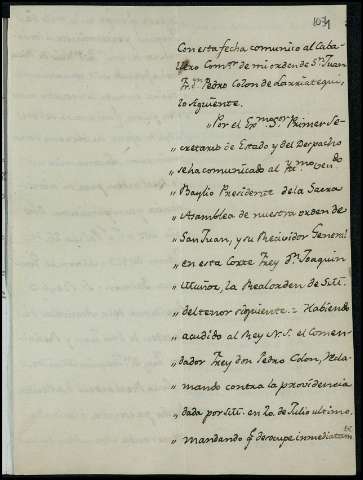 1071
Con esta fecha comunico al Caba-
llero Com.or de mi orden de S.n Juan
Fr. d.n Pedro Colon de Larriategui,
lo siguiente.
"Por el Ex.mo Sor Primer Se-
" cretario de Estado y del Despacho
" se ha comunicado al
" Baylio Presidente de la Sacra
" Asamblea de nuestra orden de
" San Juan, y su Recividor General
" en esta Corte Frey d.n Joaquin
" Muñoz, la Real orden de S.M.
" del tenor siguiente. = Habiendo
" acudido al Rey N.S. el Comen-
" dador Frey don Pedro Colon, recla-
" mando contra la providencia
" dada por S.M. en 20. de Julio ultimo,
" mandando q.e desocupe inmediatam.te